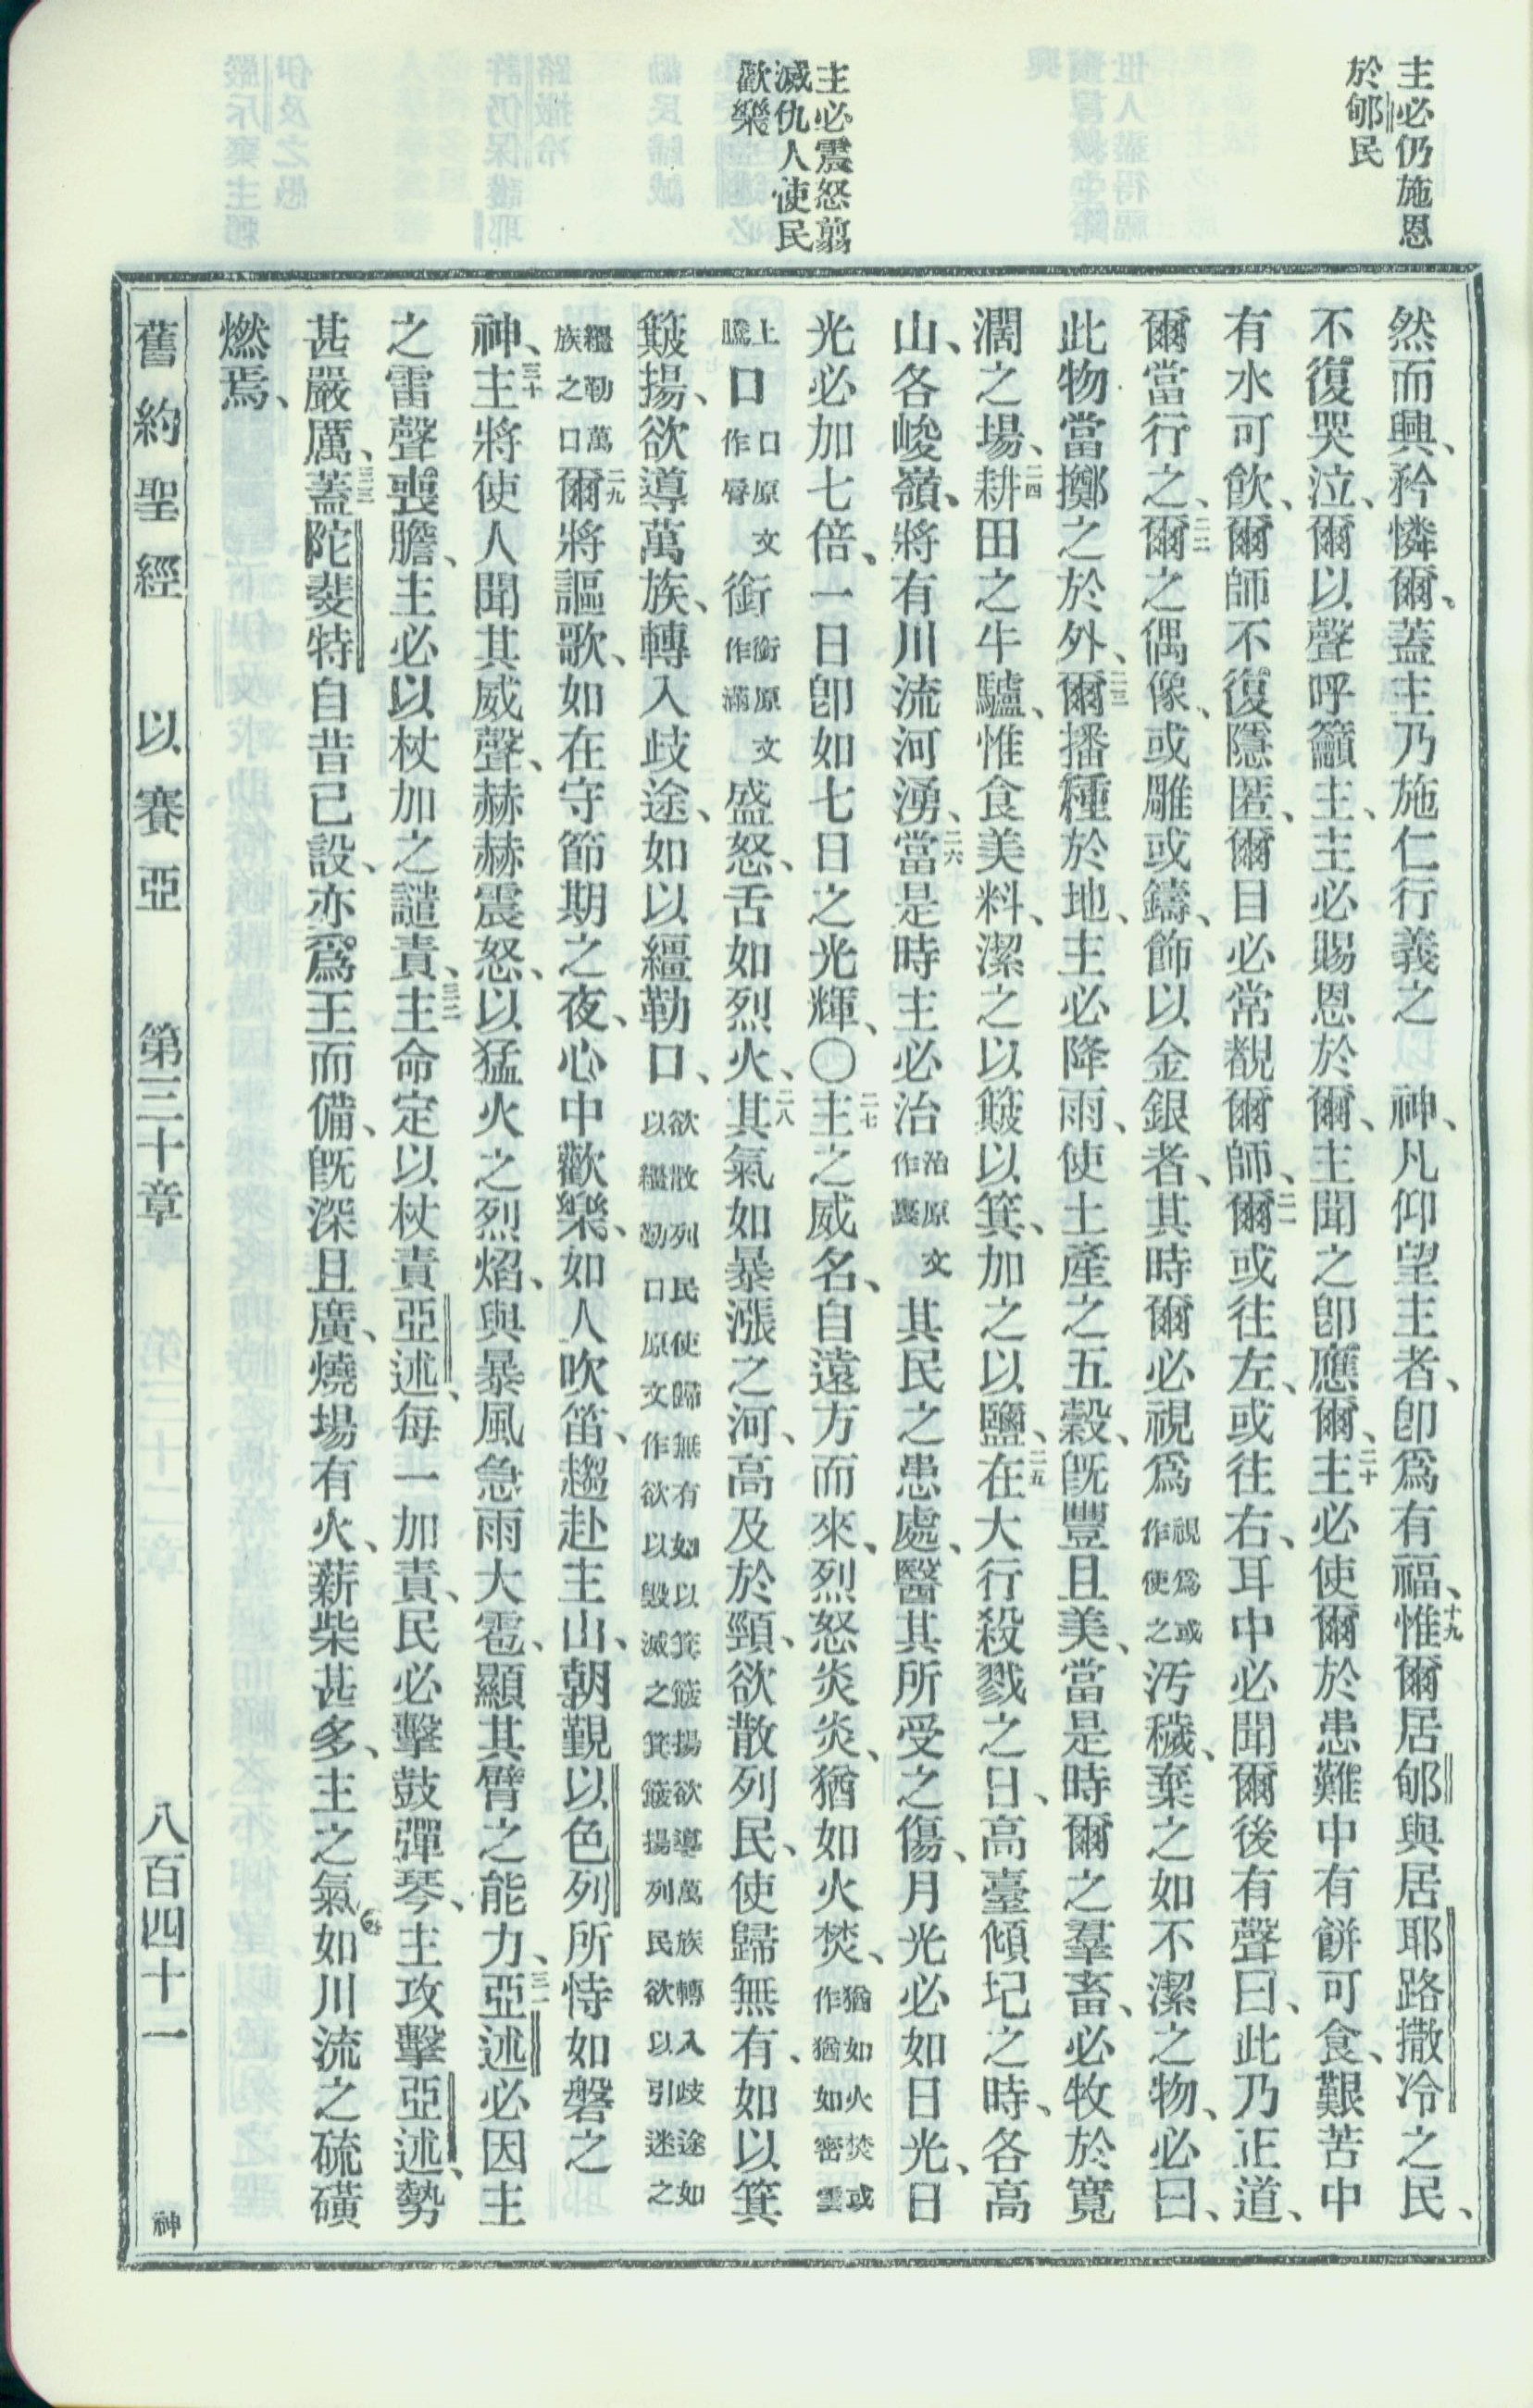 主必仍施恩
於郇民
主必震怒翦
滅仇人使民
歡樂
然而興、矜憐爾、蓋主乃施仁行義之 神、凡仰望主者、卽爲有福、十九惟爾居郇與居耶路撒冷之民、
不復哭泣、爾以聲呼籲主、主必賜恩於爾、主聞之卽應爾、二十主必使爾於患難中有餅可食、艱苦中
有水可飲、爾師不復隱匿、爾目必常覩爾師、二一爾或往左、或往右、耳中必聞爾後有聲曰、此乃正道、
爾當行之、二二爾之偶像、或雕或鑄、飾以金銀者、其時爾必視爲視爲或作使之汚穢、棄之如不潔之物、必曰、
此物當擲之於外、二三爾播種於地、主必降雨、使土產之五穀、旣豐且美、當是時爾之羣畜、必牧於寬
濶之場、二四耕田之牛驢、惟食美料、潔之以簸以箕、加之以鹽、二五在大行殺戮之日、高臺傾圮之時、各高
山、各峻嶺、將有川流河湧、二六當是時主必治治原文作裹其民之患處、醫其所受之傷、月光必如日光、日
光必加七倍、一日卽如七日之光輝、〇二七主之威名、自遠方而來、烈怒炎炎、猶如火焚、猶如火焚或作猶如密雲
上騰口口原文作脣銜銜原文作滿盛怒、舌如烈火、二八其氣如暴漲之河、高及於頸、欲散列民、使歸無有、如以箕
簸揚、欲導萬族、轉入歧途、如以繮勒口、欲散列民使歸無有如以箕簸揚欲導萬族轉入歧途如以繮勒口原文作欲以毀滅之箕簸揚列民欲以引迷之
繮勒萬族之口二九爾將謳歌、如在守節期之夜、心中歡樂、如人吹笛、趨赴主山、朝覲以色列所恃如磐之
神、三十主將使人聞其威聲、赫赫震怒、以猛火之烈焰、與暴風急雨大雹、顯其臂之能力、三一亞述必因主
之雷聲喪膽、主必以杖加之譴責、三二主命定以杖責亞述、每一加責、民必擊鼓彈琴、主攻擊亞述、勢
甚嚴厲、三三蓋陀斐特自昔已設、亦爲王而備、旣深且廣、燒場有火、薪柴甚多、主之氣如川流之硫磺
燃焉、
舊約聖經 以賽亞 第三十章 八百四十一 神